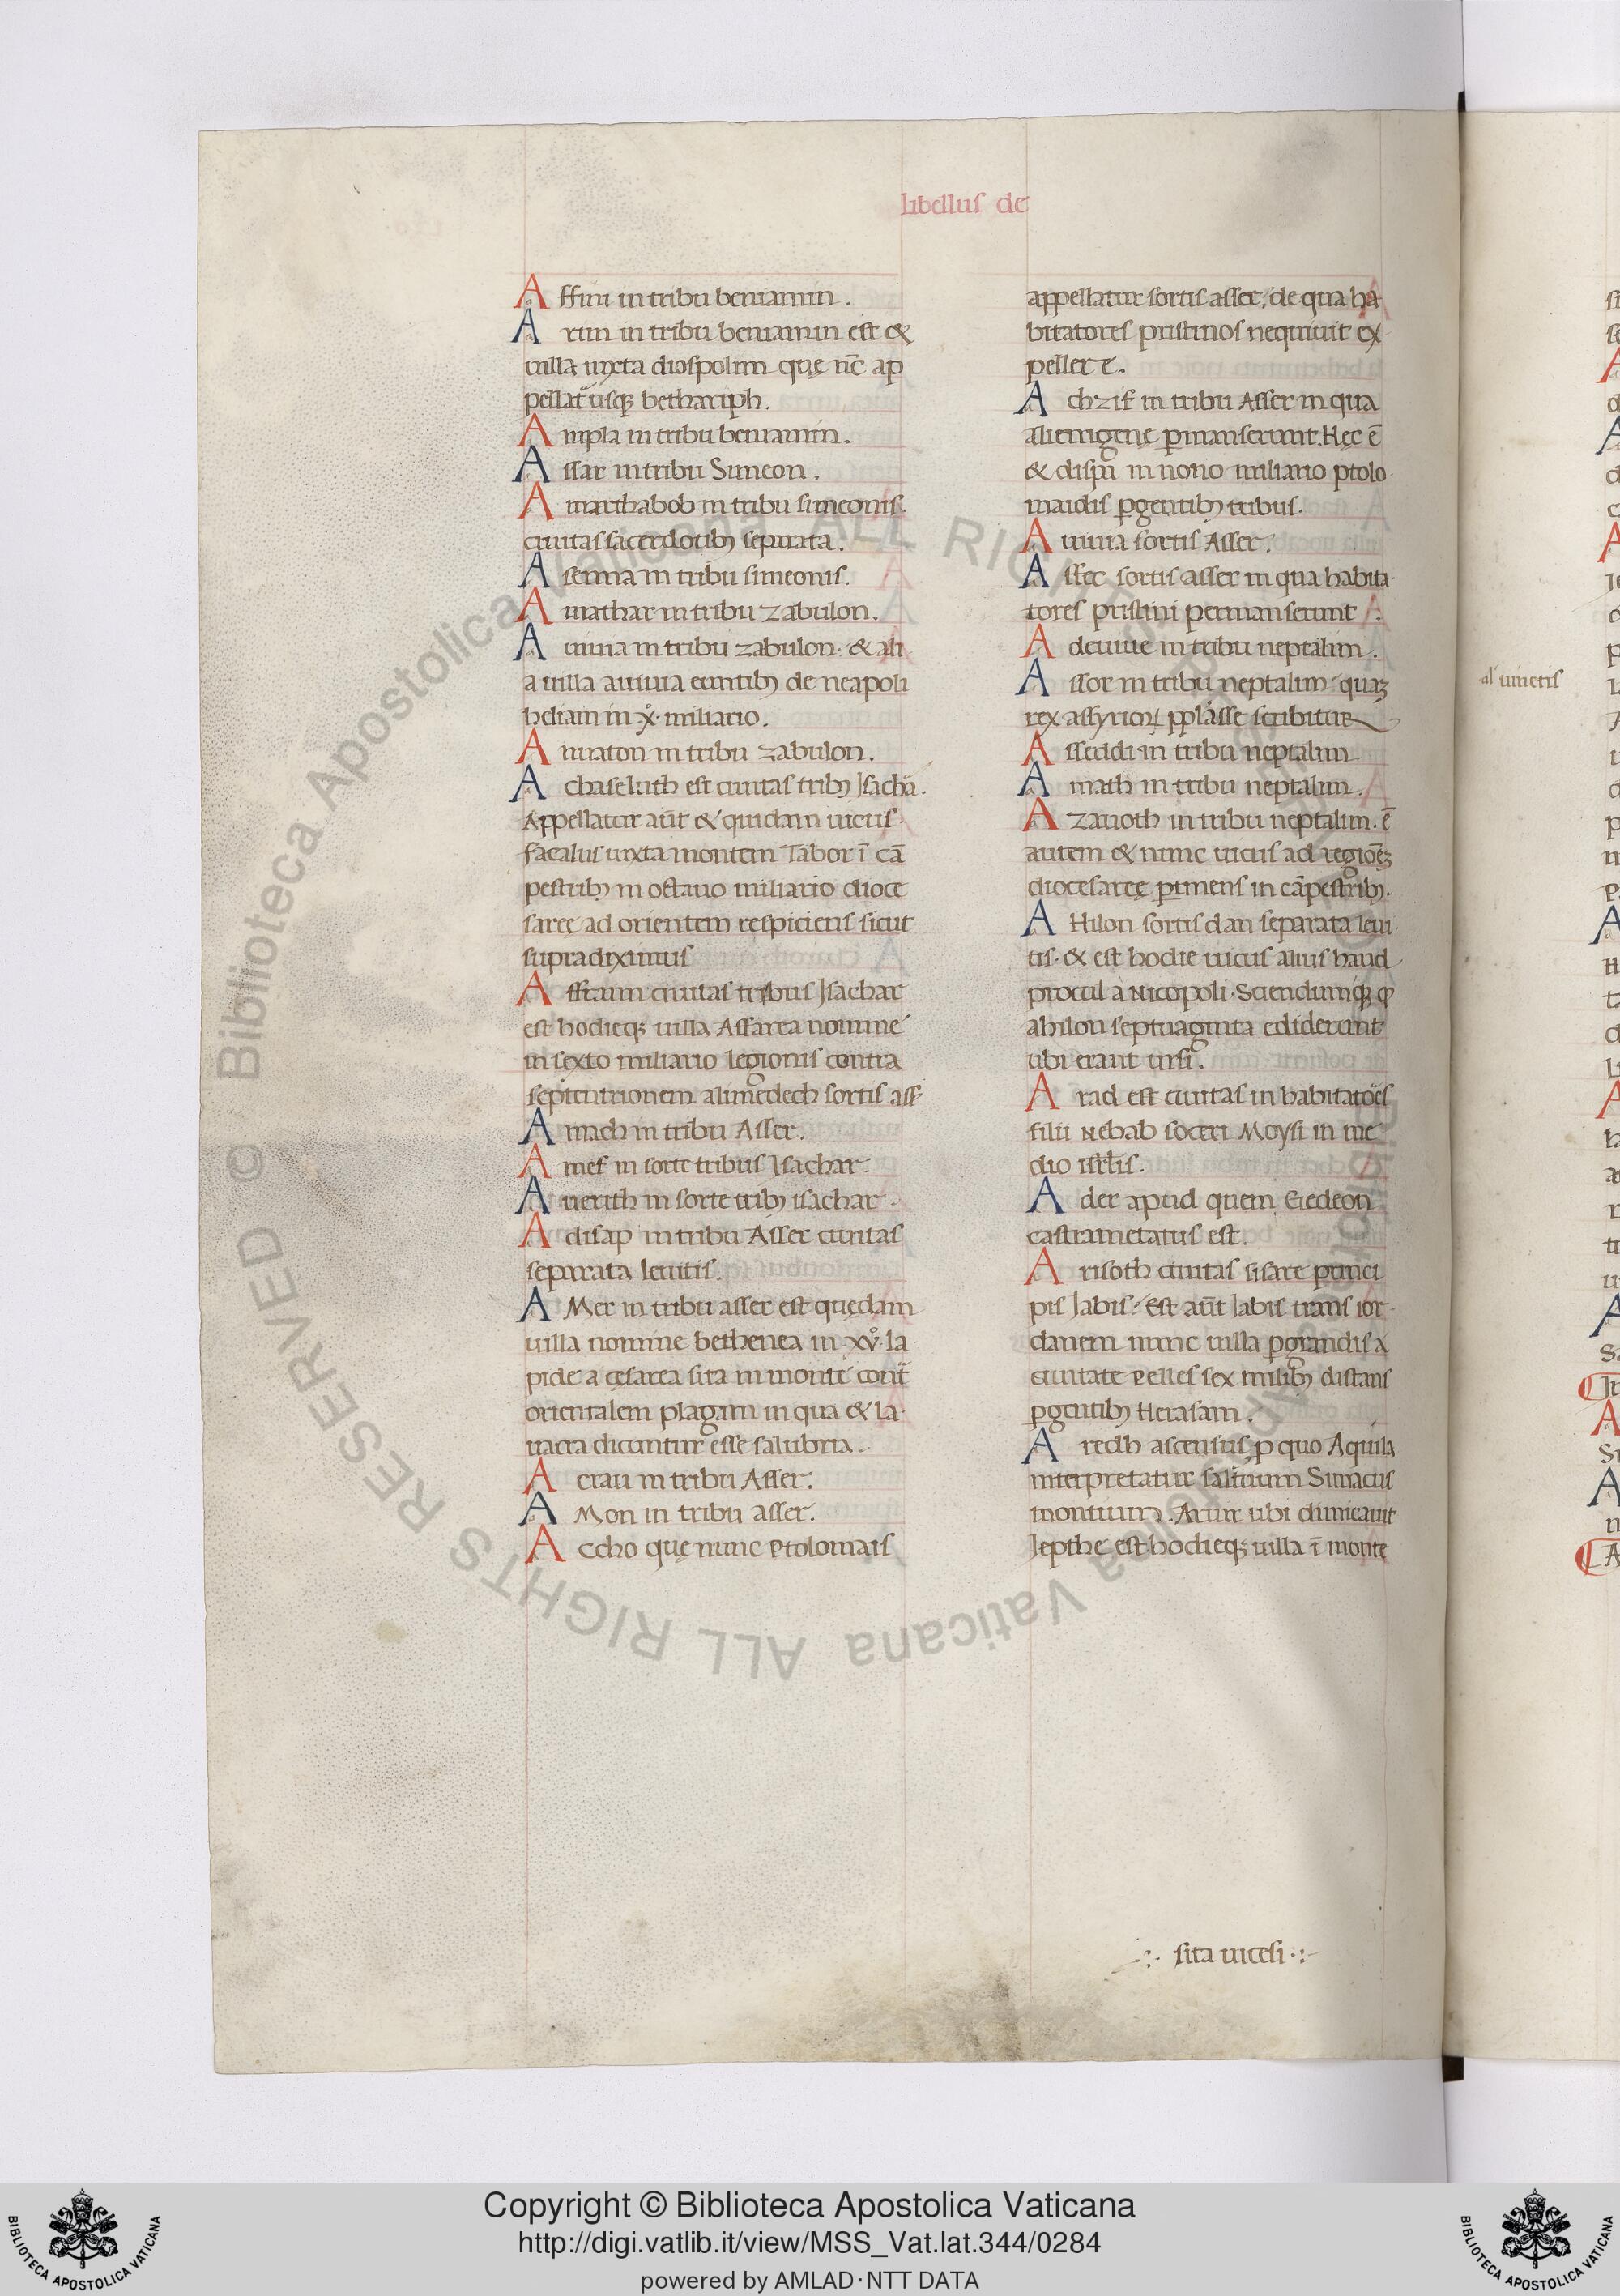 libellus de
Affini in tribu beniamin.
Arim in tribu beniamin est &
uilla iuxta diospolim quę nc̄ ap
pellat̄ usq; bethariph.
Ampla in tribu beniamin.
Assar in tribu Simeon.
Amathabob in tribu simeonis.
ciuitas sacerdotibꝫ separata.
Asenna in tribu simeonis.
Amathar in tribu zabulon.
Aniua in tribu zabulon. & ali
a uilla auiuia euntibꝫ de neapoli
heliam in .x̊. miliario.
Anuaton in tribu zabulon.
Achaseluth est ciuitas tribꝫ Isachā.
Appellatur aūt & quidam uicus
facalus iuxta montem Tabor ī cā
pestribꝫ in octauo miliario dioce
saręę ad orientem respiciens sicut
supradiximus
Affraim ciuitas tribus Isachar
est hodieq; uilla Affarea nomine
in sexto miliario legionis contra
septentrionem alimedech sortis ass̄
Amach in tribu Asser.
Amef in sorte tribus Isachar.
Auerith in sorte tribꝫ isachar.
Adisap in tribu Asser ciuitas
separata leuitis.
AMer in tribu asser est quędam
uilla nomine bethenea in .xv̊. la
pide a cęsarea sita in monte cont̄
orientalem plagam in qua & la
uacra dicuntur esse salubria.
Acrau in tribu Asser.
AMon in tribu asser.
Accho quę nunc Ptolomais
appellatur sortis asser; de qua ha
bitatores pristinos nequiuit ex
pellere.
Achzif in tribu Asser in qua
alienigenę ꝑmanserunt. Hęc ē
& in nono miliario ptolo
maidis ꝑgentibꝫ tribus.
Auiua sortis Asser.
Affec sortis asser in qua habita
tores pristini permanserunt.
Ademme in tribu neptalim.
Assor in tribu neptalim quaꝫ
rex assyrioꝝ scribitur
Asseddi in tribu neptalim
Amath in tribu neptalim.
Azanoth in tribu neptalim. ē
autem & nunc uicus ad regionēꝫ
diocesaręę ꝑtinens in cāpestribꝫ.
AHilon sortis dan separata leui
tis. & est hodie uicus alius haud
procul a Nicopoli. Sciendumq;
ahilon septuaginta ediderunt
ubi erant ursi.
Arad est ciuitas in habitatōes
filii Nebab soceri Moysi in me
dio isrl̄is.
Ader apud quem Gedeon
castrametatus est.
Arisoth ciuitas sisare princi
pis Iabis. Est aūt Iabis trans ior
danem nunc uilla ꝑgrandis a
ciuitate Pelles sex milibꝫ distans
ꝑgentibꝫ Herasam.
Aredh ascensus ꝑ quo Aquila
interpretatur saltuum Simacus
montium. Arur ubi dimicauit
Iepthe est hodieq; uilla ī monte
sita uicesi
al' uineis
Copyright © Biblioteca Apostolica Vaticana
http://digi.vatlib.it/view/MSS_Vat.lat.344/0284
powered by AMLAD·NTT DATA